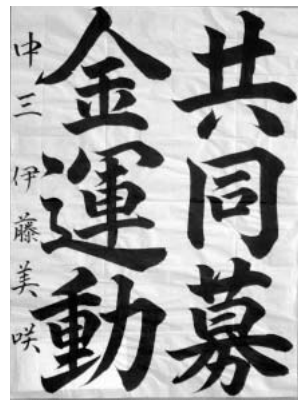 共同募
金運動
中三 伊藤美咲